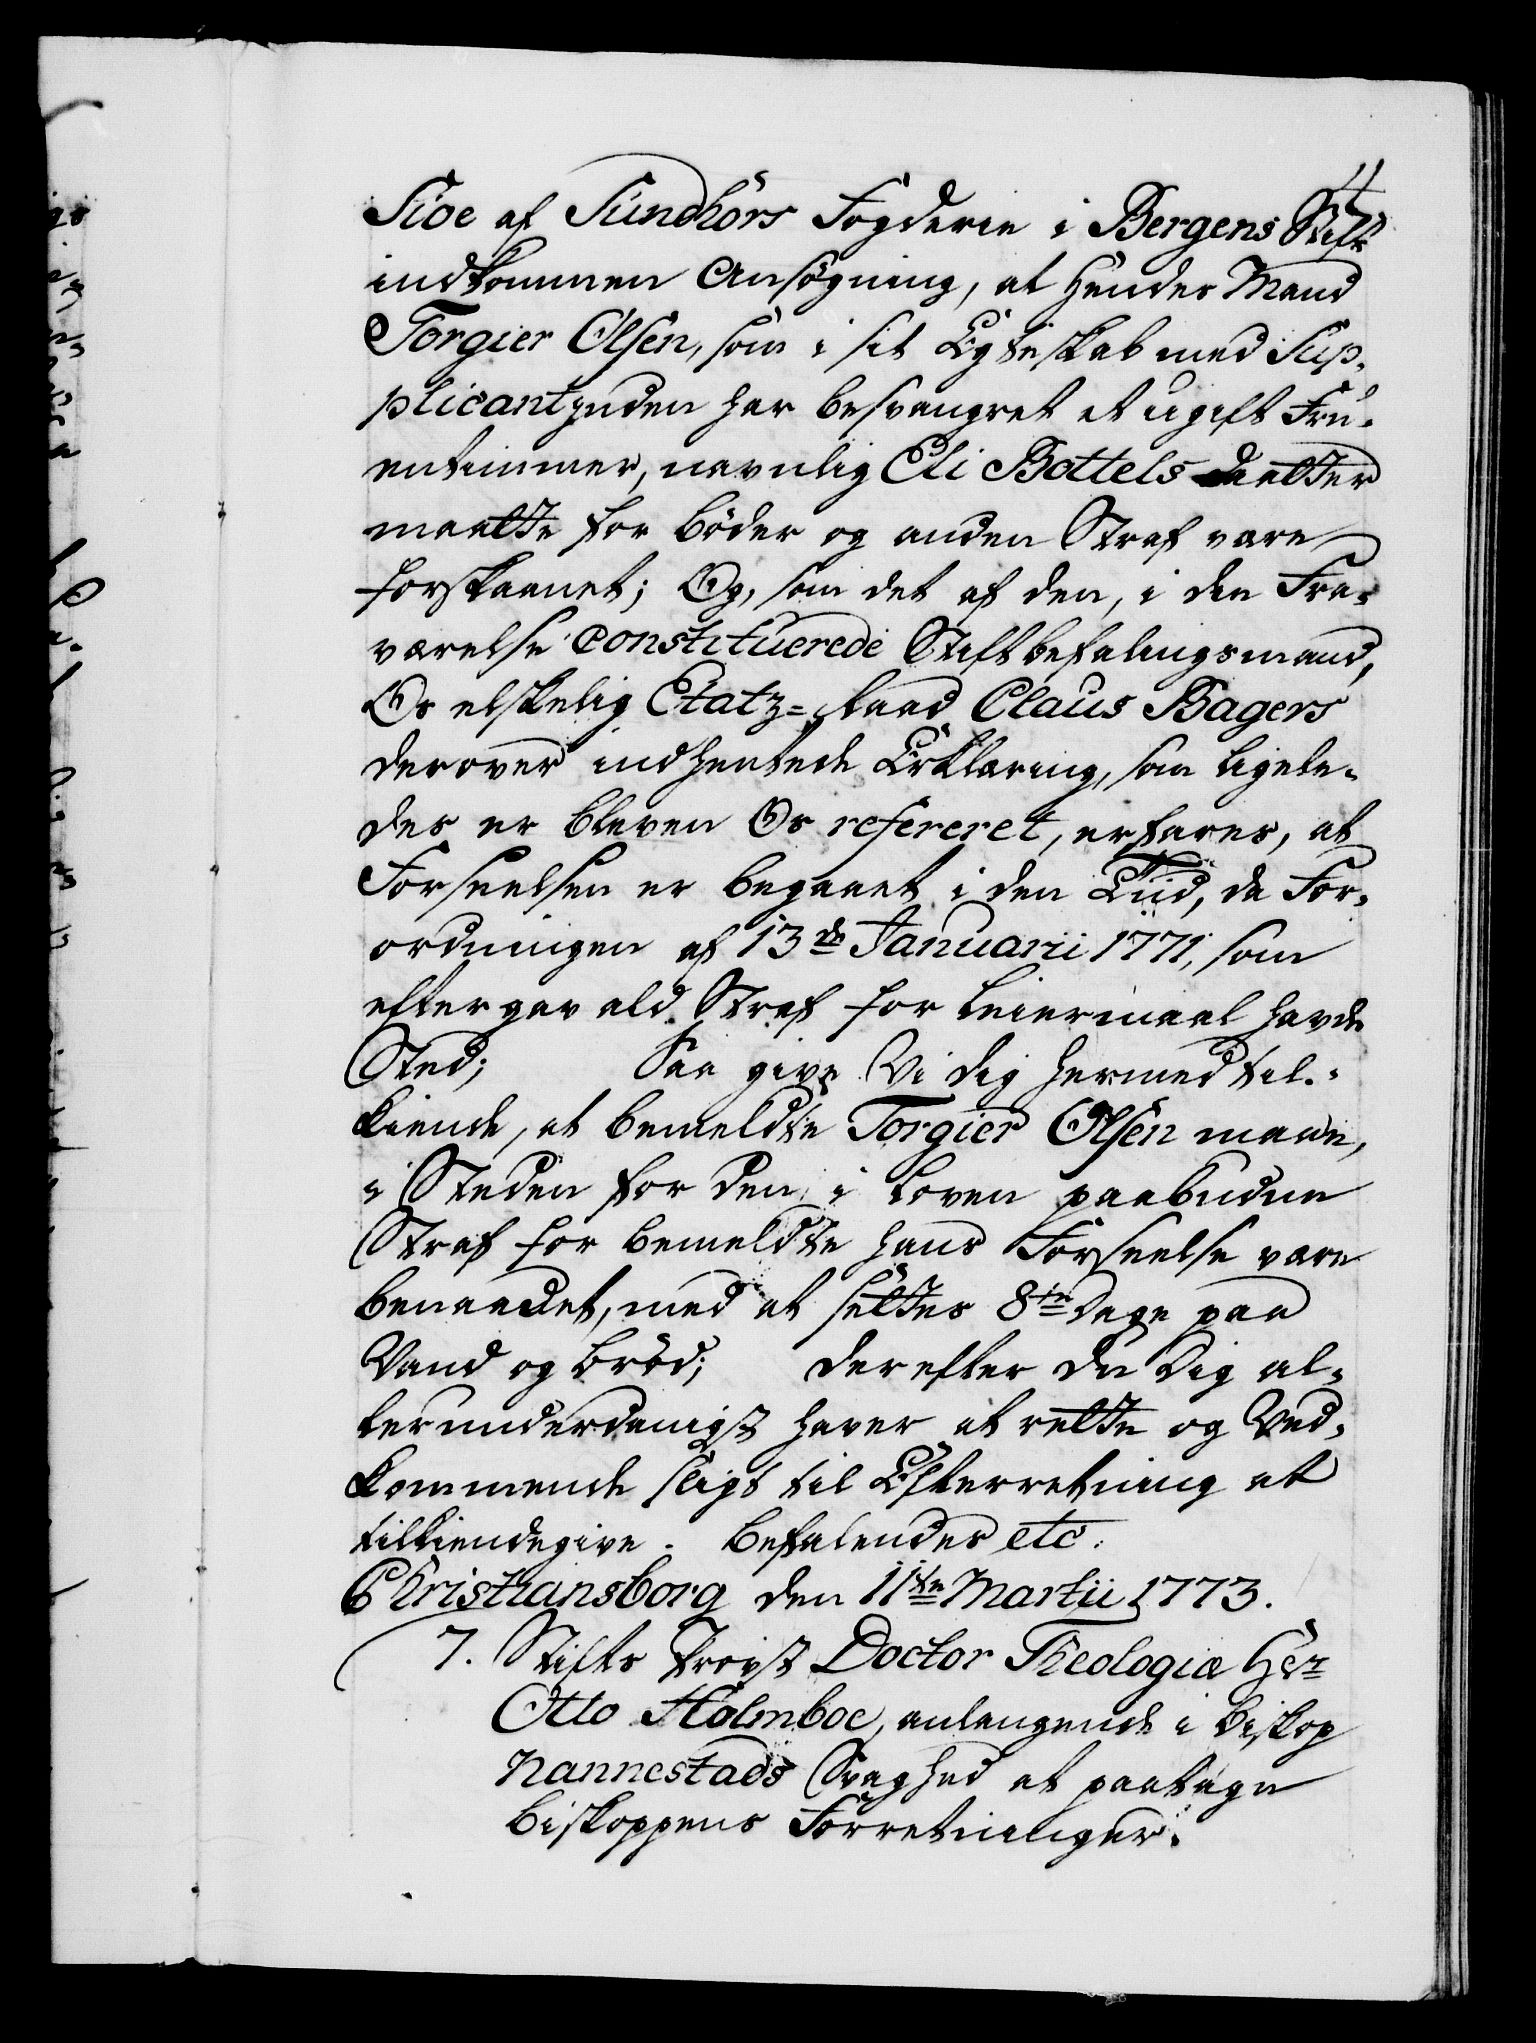 Sioe af Sundhörs Fogderie i Bergens Stift
indkommen Ansögning, at hendes Mand
Torgier Olsen, som i sit Egteskab med Sup-
plicantinden har besvangret et ugift Fru-
entimmer, navnlig Eli Bottels Daatter
maatte for böder og anden Straf være
forskaanet; Og, som det af den, i din Fra-
værelse constituerede Stiftbefalingsmand,
Os elskelig Etatz-Raad Claus Bagers
derover indhentede Erklæring, som ligele-
des er bleven Os refereret, erfares, at
Forseelsen er begaaet i den Tiid, da For-
ordningen af 13de Januarii 1771, som
eftergav ald Straf for Leiermaal havde
Sted; Saa give Vi dig hermed til-
kiende, at bemeldte Torgier Olsen maae,
i Steden for den i Loven paabudne
Straf for bemeldte hans Forseelse være
benaadet, med at settes 8te Dage paa
Vand og bröd; derefter du dig al-
lerunderdanigst haver at rette og Ved-
kommende sligt til Efterretning at
tilkiendegive. Befalendes etc.
Christiansborg den 11te Martii 1773.
7. Stifts Provst Doctor Theologiæ Her
Otto Holmboe, anlangende i Biskop
Nannestads Svaghed at paatage
biskoppens Forretninger.